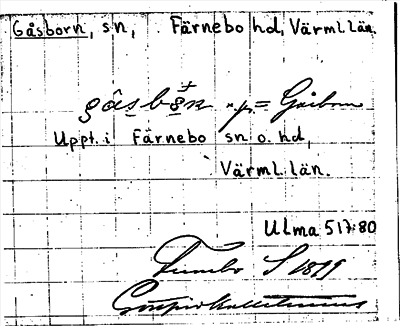 Gåsborn, sn, Färnebo hd, Värml. län.
gås n.p. = Gåsborn
Uppt. i Färnebo sn o. hd,
Värml. län.
Ulma 517:80
S 1899